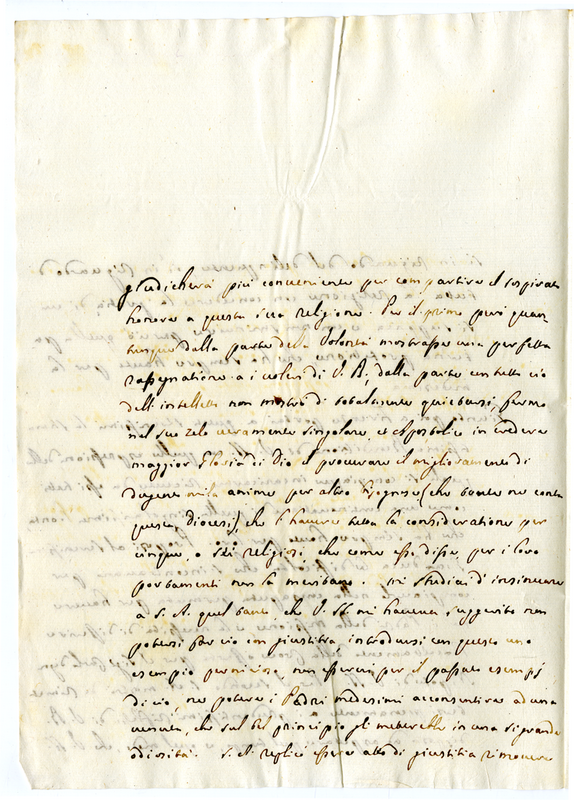 giudicherà più conveniente per compartire il sospirato
honore a questa sua religione. Per il primo però quan
tunque dalla parte della Volontà mostrasse una perfetta
rassegnatione a i voleri di V. B., dalla parte con tutto ciò
dell'intelletto non mostrò di totalmente quietarsi, fermo
nel suo zelo veramente singolare, et Apostolico in credere
maggior Gloria di Dio il procurare il miglioramento di
dugento mila anime per altro bisognose (che tante ne conta
questa diocesi), che l'havere tutta la consideratione per
cinque, o sei religiosi che come esso disse, per i loro
portamenti non la meritano. Mi studiai d'insinuare
a S. A. quel tanto, che V. St. mi haveva suggerito non
potersi far ciò con giustitia, introdursi con questo uno
esempio pernicioso, non esservi per il passato esempj
di ciò, ne potere i Padri medesimi acconsentire ad una
venuta, che sul bel principio gli metterebbe in una sì grande
odiosità. S. A. replicò essere atto di giustitia rimovere